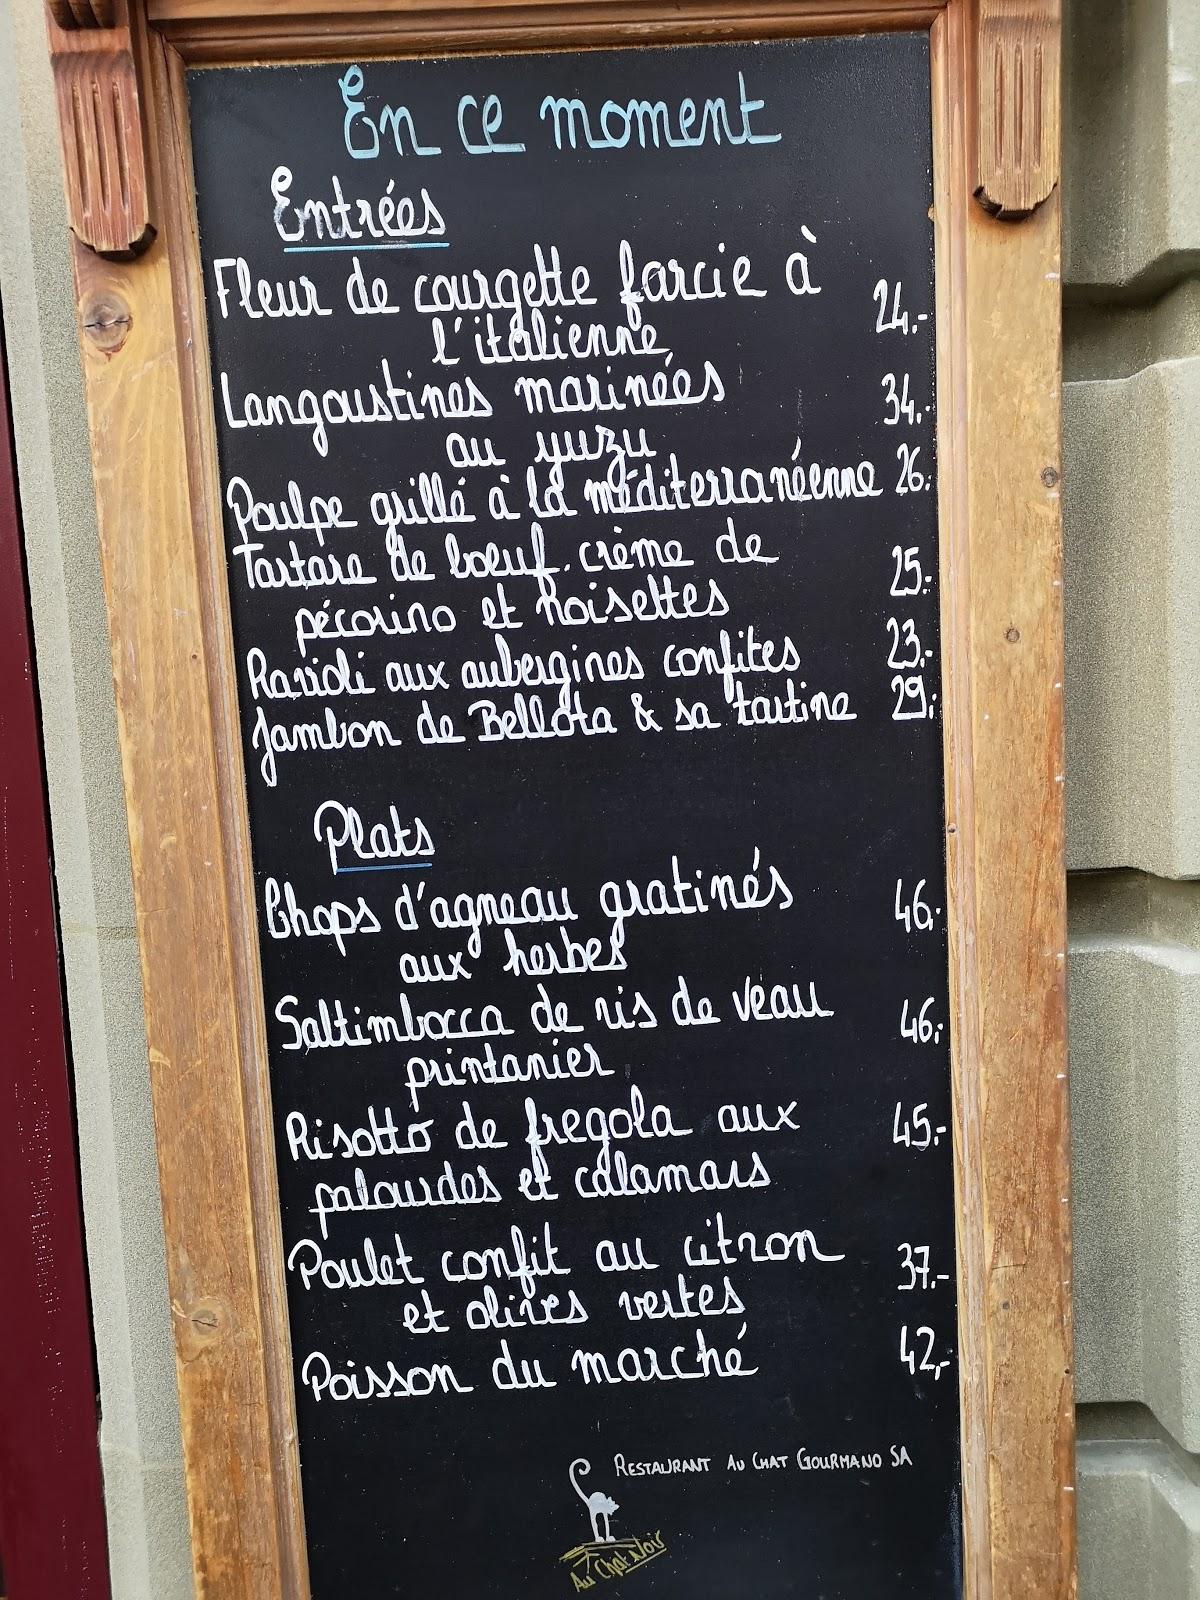 En ce moment
Entrées
Fleur de courgette farcie à
l'italienne 24.-
Langoustines marinées 34.-
au yuzu
Poulpe grillé à la méditerranéenne 26.-
Tartare de boeuf, crème de
pécorino et noisettes 25.-
Ravioli aux aubergines confites 23.-
Jambon de Bellota & sa tartine 29.-
Plats
Chops d'agneau gratinés 46.-
aux herbes
Saltimbocca de ris de veau 46.-
printanier
Risotto de fregola aux 45.-
palourdes et calamars
Poulet confit au citron 37.-
et olives vertes
Poisson du marché 42.-
RESTAURANT AU CHAT GOURMAND SA
Au Chat Noir